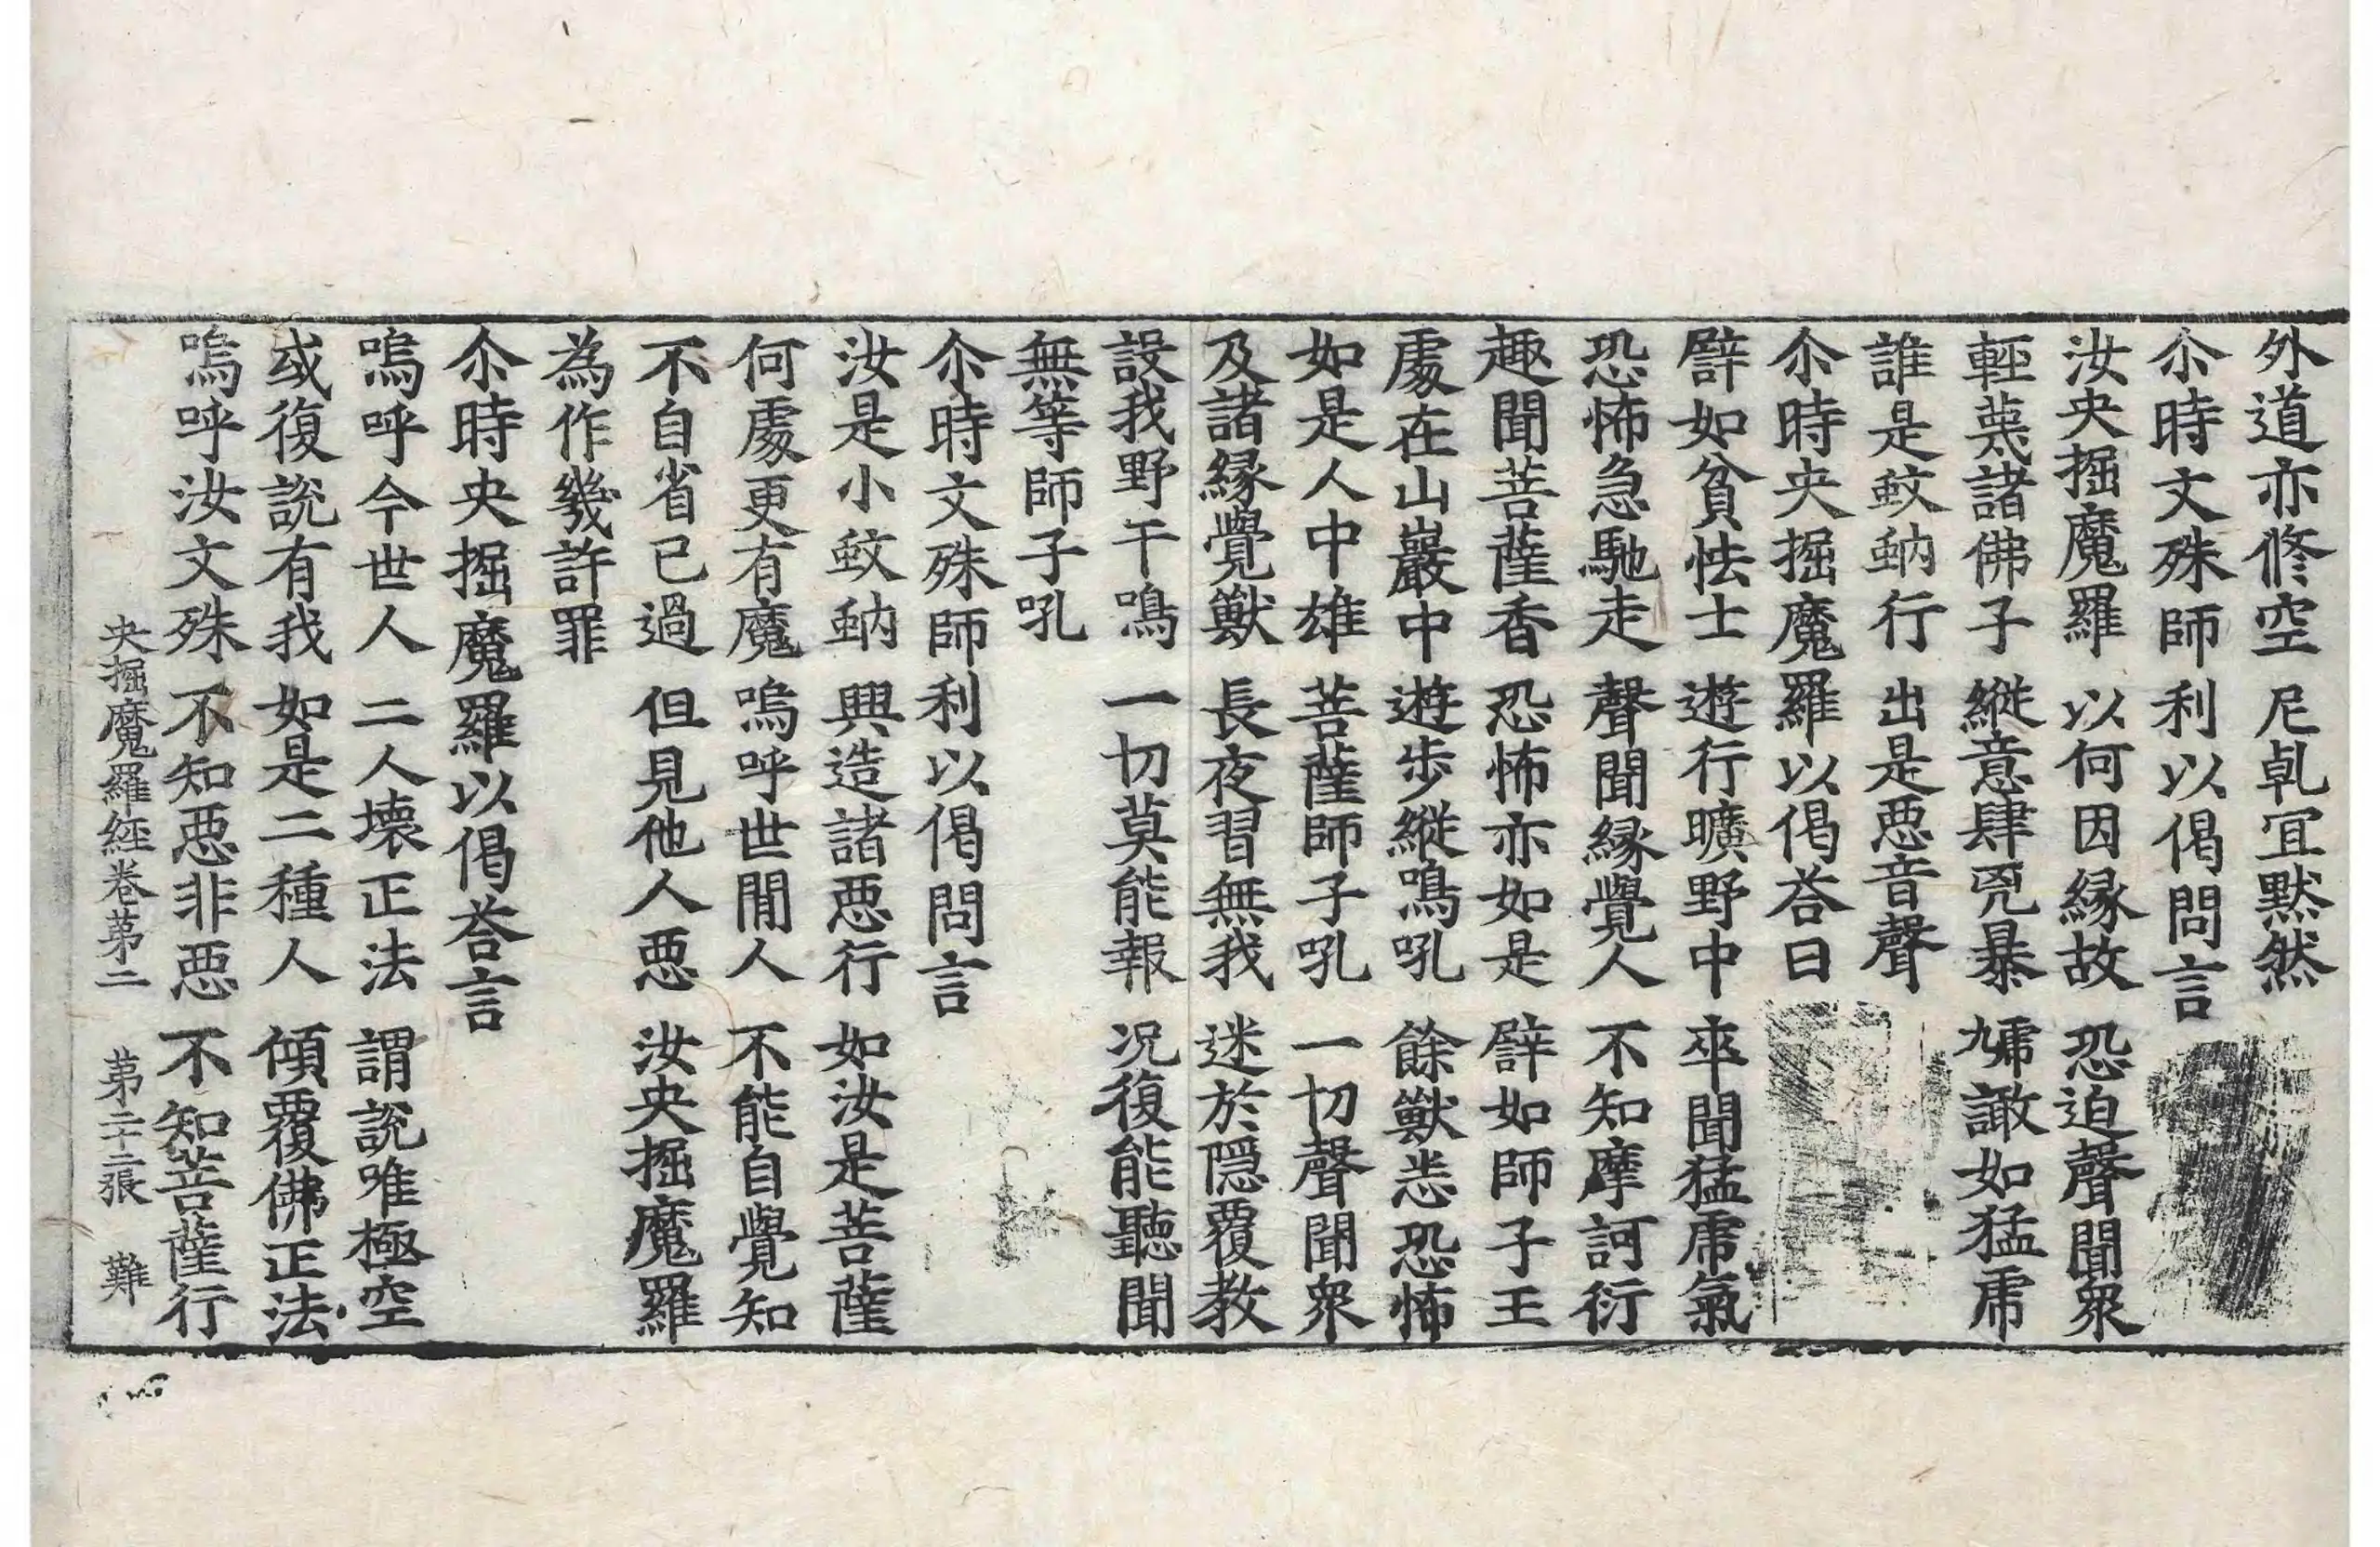 外道亦修空　尼乹宜默然
尒時文殊師利以偈問言
汝央掘魔羅　以何因縁故　恐迫聲聞衆
輕蔑諸佛子　縱意肆兇暴　虓譀如猛虎
誰是蚊蚋行　出是惡音聲
尒時央掘魔羅以偈荅曰
譬如貧怯士　遊行曠野中　卒聞猛虎氣
恐怖急馳走　聲聞縁覺人　不知摩訶衍
趣聞菩薩香　恐怖亦如是　譬如師子王
處在山巖中　遊步縱鳴吼　餘獸悉恐怖
如是人中雄　菩薩師子吼　一切聲聞衆
及諸縁覺獸　長夜習無我　迷於隱覆教
設我野干鳴　一切莫能報　况復能聽聞
無等師子吼
尒時文殊師利以偈問言
汝是小蚊蚋　興造諸惡行　如汝是菩薩
何處更有魔　嗚呼世閒人　不能自覺知
不自省已過　但見他人惡　汝央掘魔羅
為作幾許罪
尒時央掘魔羅以偈荅言
嗚呼今世人　二人壊正法　謂說唯極空
或復說有我　如是二種人　傾覆佛正法
嗚呼汝文殊　不知惡非惡　不知菩薩行
央掘魔羅經卷苐二　苐二十二張　難